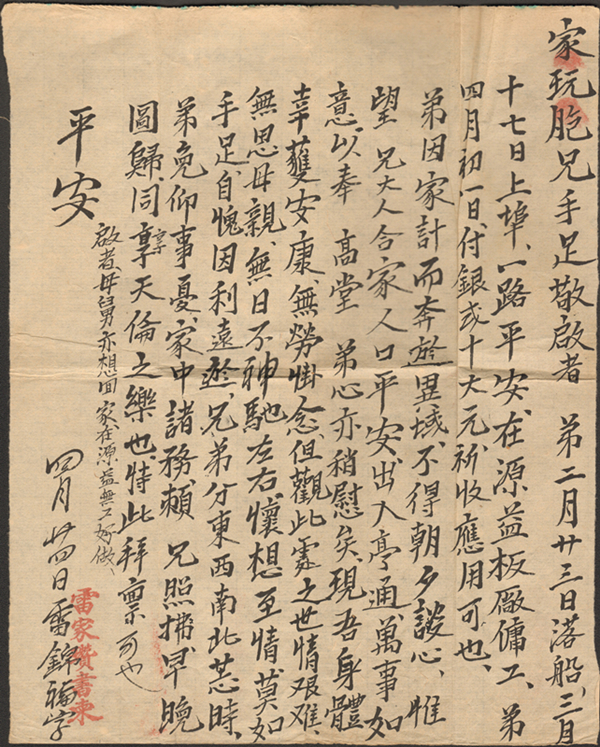 家玩胞兄手足敬啟者　弟二月廿三日落船、三月
十七日上埠、一路平安、在源益板廠傭工、弟
四月初一日、付銀弍十大元、祈收應用可也、
弟因家計而奔於異域、不得朝夕談心、惟
望　兄大人合家人口平安、出入亨通、萬事如
意、以奉　高堂　弟心亦稍慰矣、現吾身體
幸獲安康、無勞掛念、但觀此處之世情艰难、
無思母親、無日不神馳左右、懷想至情、莫如
手足、自愧因利遠遊、兄弟分東西南北、恙時、
弟免仰事憂、家中諸務賴　兄照拂、早晚
圖歸、同享天倫之樂也、特此拜稟　可也
平安
啟者、母舅亦想回家、在源益無工好做、
四月廿四日　雷錦字
雷家讚書柬